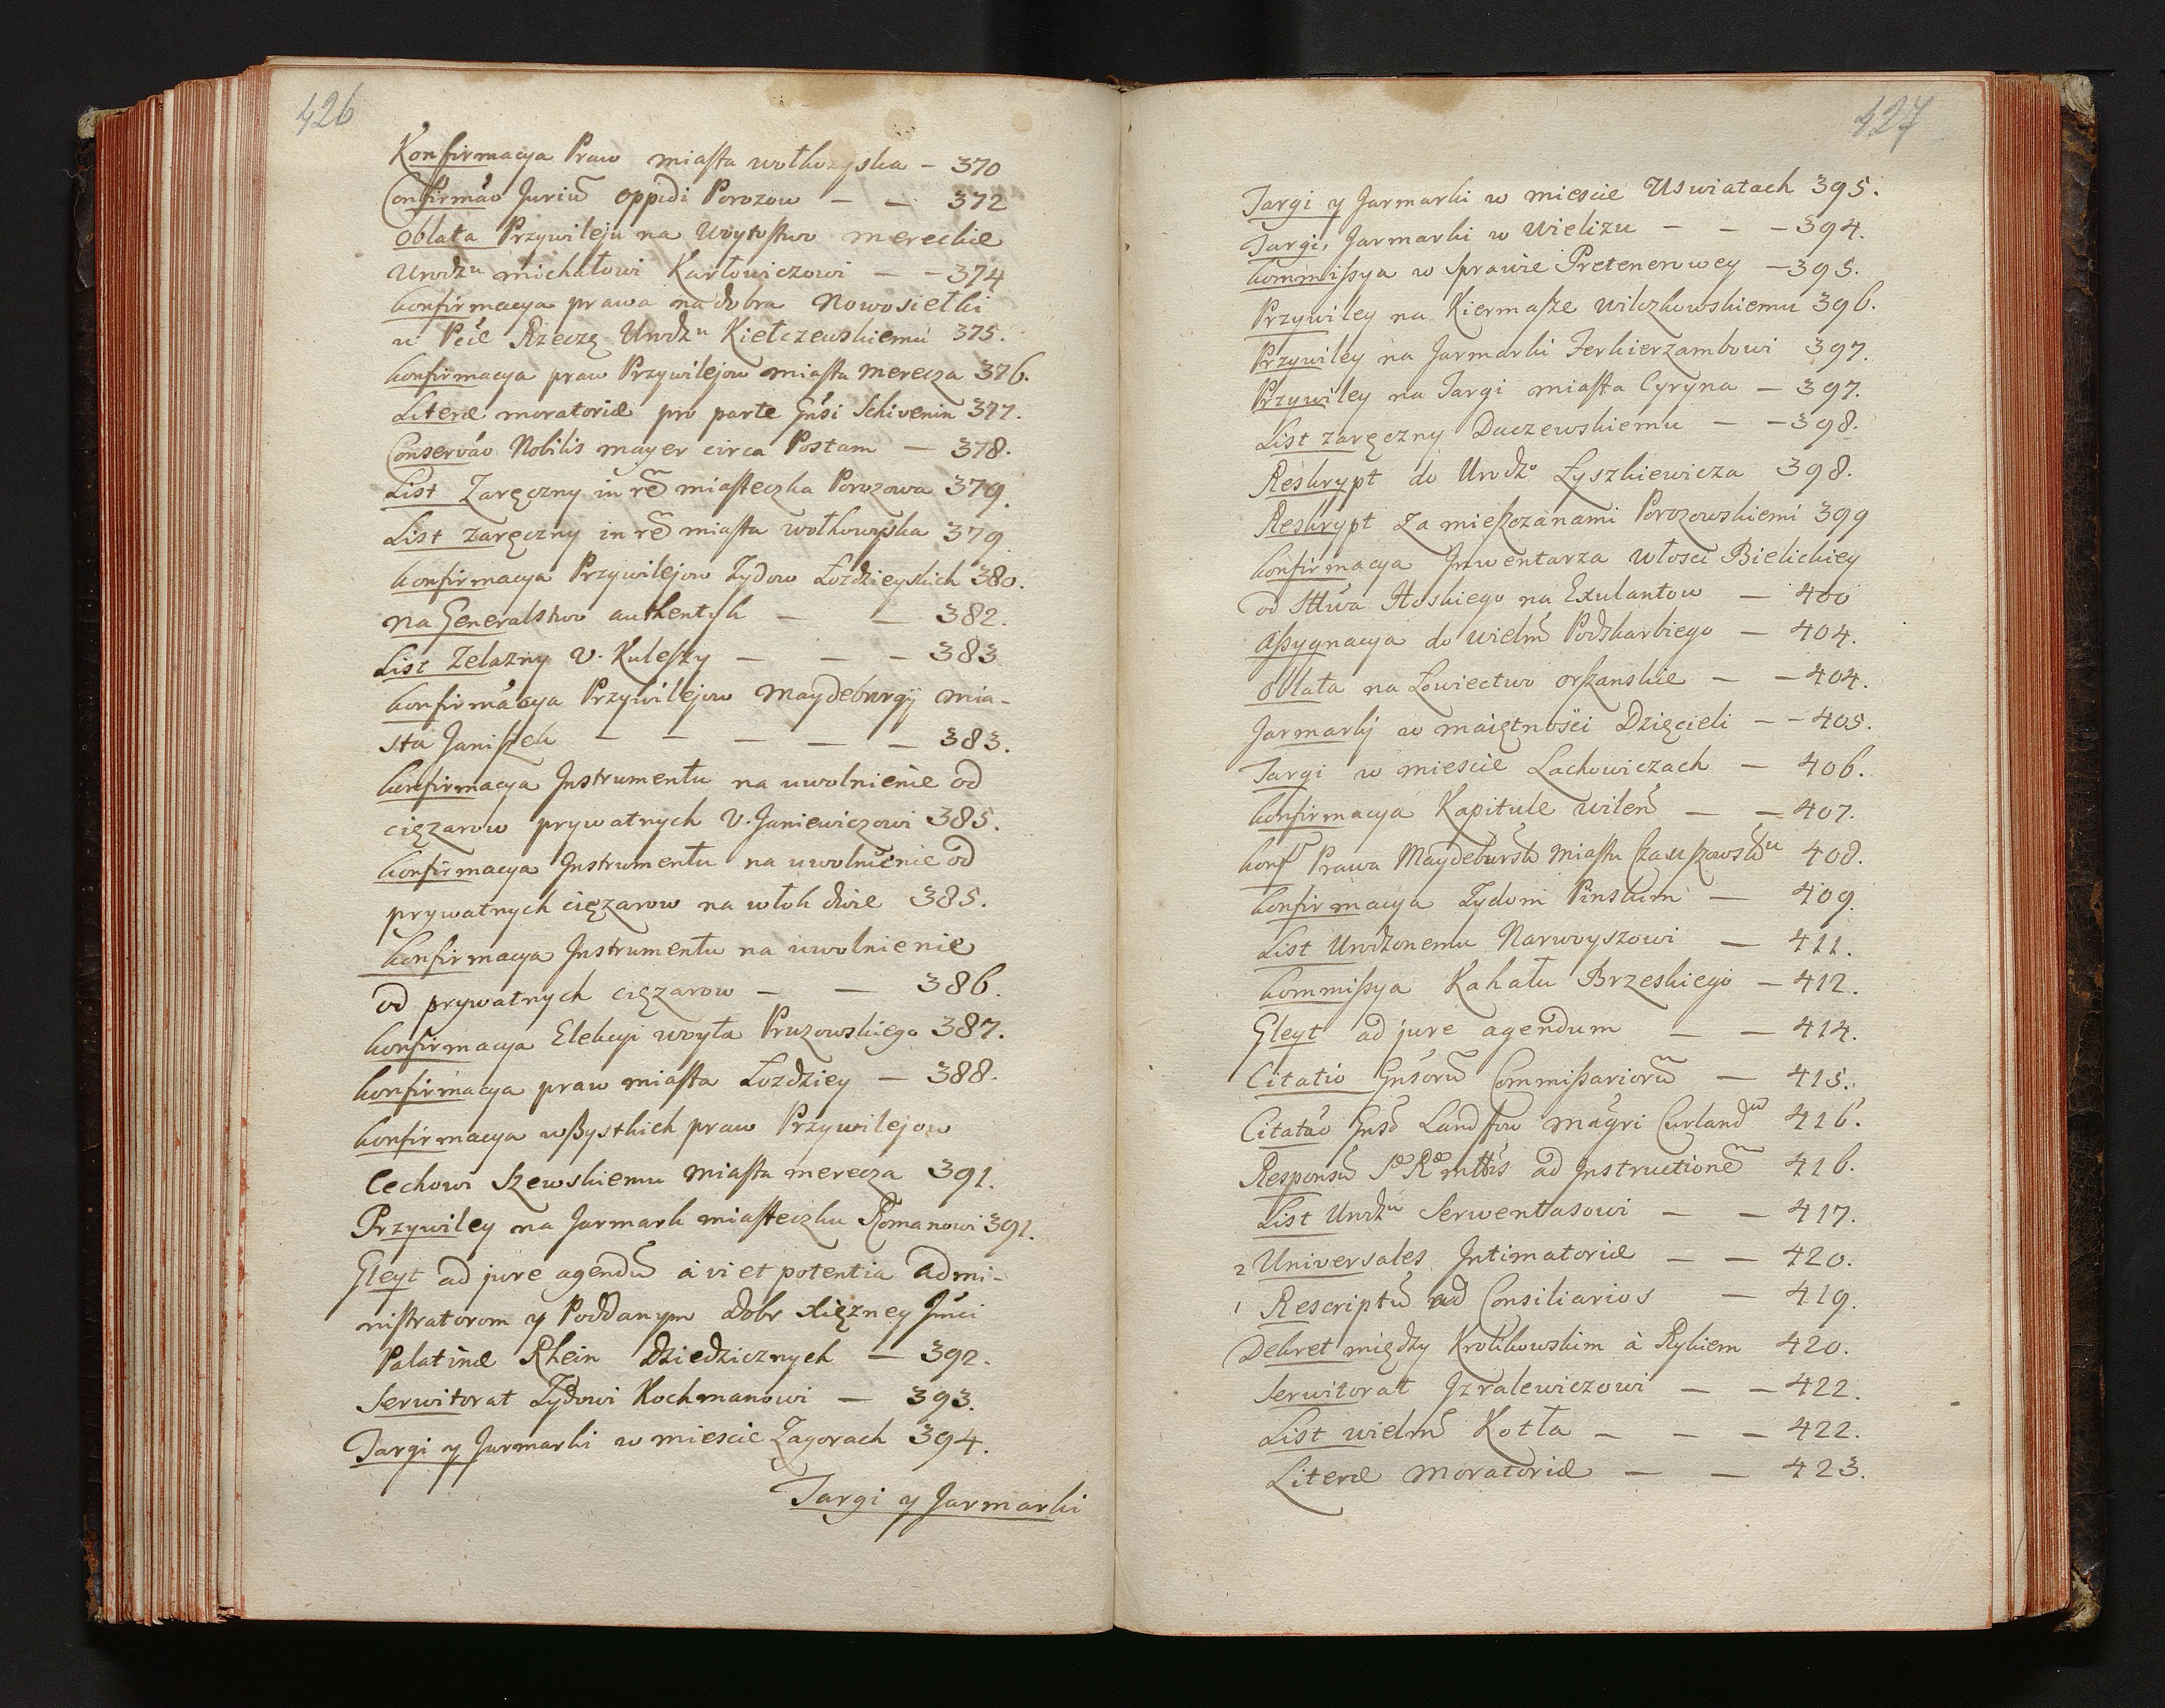 426
Konfirmacya Praw miasta wołkowyska – 370
Confirmão Juriū oppidi Porozow – – 372
Oblata Przywileju na Woytostwo mereckie
Urodzu michałowi Karłowiczowi – – 374
konfirmacya prawa na dobra Nowosiełki
w Pcie Rzeczę Urodzu Kiełczewskiemu 375.
konfirmacya praw Przywilejow miasta merecza 376.
Literæ moratoriæ pro parte Gnsi Schivenin 377.
Conservão Nobilis mayer circa Postam – 378.
List Zaręczny in rē miasteczka Porozowa 379.
List zaręczny in rē miasta wołkowyska 379.
konfirmacya Przywilejow Zydow Łozdzieyskich 380.
na Generalstwo authentyk – – 382.
List Zelazny U. Kuleszy – – – 383
konfirmacya Przywilejow maydeburgij mia-
sta Janiszek – – – – – 383.
konfirmacya Instrumentu na uwolnienie od
cięzarow prywatnych U. Janiewiczowi 385.
konfirmacya Instrumentu na uwolnienie od
prywatnych cięzarow na włok dwie 385.
konfirmacya Instrumentu na uwolnienie
od prywatnych cięzarow – – 386.
konfirmacya Elekcyi woyta Pruzowskiego 387.
konfirmacya praw miasta Łozdziey – 388.
konfirmacya wszystkich praw Przywilejow
Cechowi Szewskiemu miasta merecza 391.
Przywiley na Jarmark miasteczku Romanowi 391.
Gleyt ad jure agendū à vi et potentia admi-
nistratorom y Poddanym dobr xięzney Jmci
Palatinæ Rhein Dziedzicznych – 392.
Serwitorat Zydowi Kochmanowi – 393.
Targi y Jarmarki w miescie Zagorach 394.
Targi y Jarmarki
427
Targi y Jarmarki w miescie Uswiatach 395.
Targi, Jarmarki w wielizu – – – 394.
kommissya w Sprawie Pretenerowey – 395.
Przywiley na Kiermasze wilczkowskiemu 396.
Przywiley na Jarmarki Ferkierzambowi 397.
Przywiley na Targi miasta Cyryna – 397.
List zaręczny Daczewskiemu – – 398.
Reskrypt do Urodzo Łyszkiewicza 398.
Reskrypt za mieszczanami Porozowskiemi 399
konfirmacya Inwentarza włosci Bielickiey
od Sttwa Ttoskiego na Exulantow – 400
Assygnacya do wielm Podskarbiego – 404.
Oblata na Łowiectwo orszanskie – – 404.
Jarmarkj w maiętności Dzięcieli – – 405.
Targi w miescie Lachowiczach – 406.
konfirmacya Kapitule wilen – – 407.
konf Prawa Maydeburskw miastu Czauszowskmu 408.
konfirmacya Zydom Pinskim – 409.
List Urodzonemu Narwoyszowi – 411.
kommissya Kahału Brzeskiego – 412.
Gleyt ad jure agendum – – 414.
Citatio Gnsorū Commissariorū – 415.
Citatão Gnso Landstow magri Curland 416.
Responsū S R mttis ad Instructionem 416.
List Urodzu Serwentasowi – – 417.
2 Universales Intimatoriæ – – 420.
1 Rescriptū ad Consiliarios – 419.
Dekret między Krolikowskim à Rykiem 420.
Serwitorat Izralewiczowi – – 422.
List wielm Kotła – – – 422.
Literæ moratoriæ – – 423.